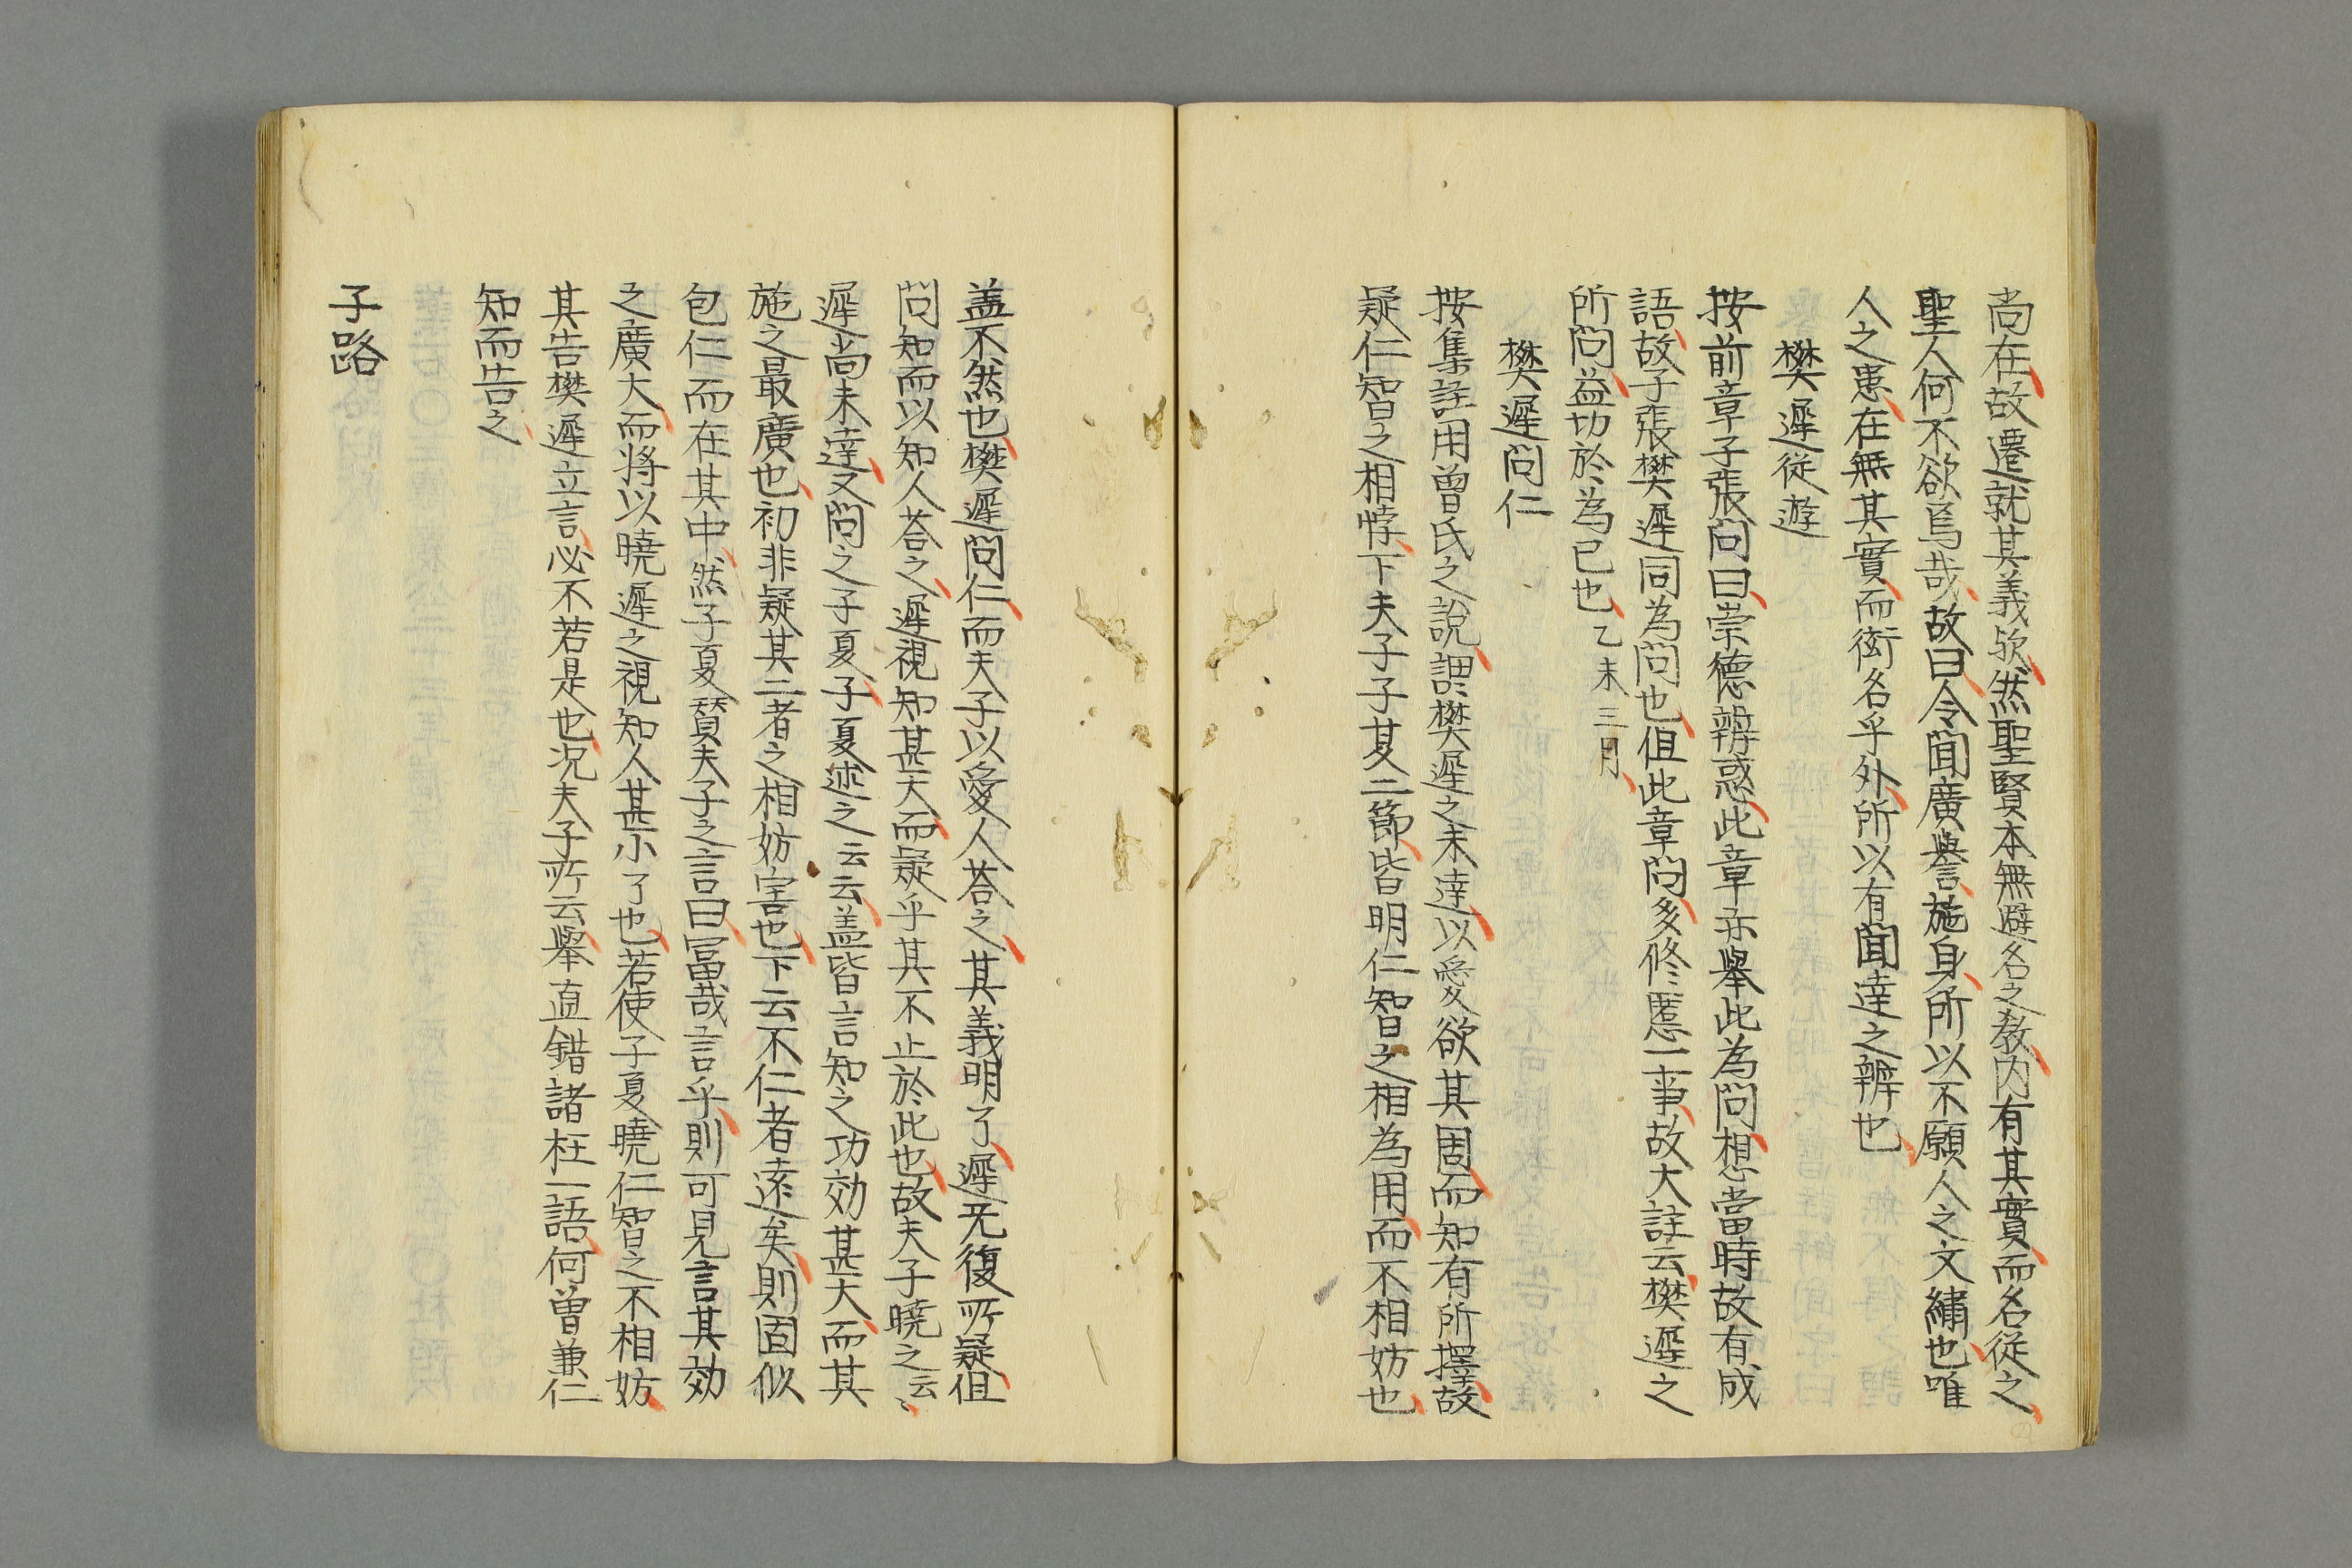 尚在故遷就其義欤然聖賢本無避名之教内有其實而名從之
聖人何不欲焉哉故曰令聞廣譽施身所以不願人之文繡也唯
人之患在無其實而衒名乎外所以有聞達之辨也
樊遲從遊
按前章子張問曰崇德辨惑此章亦擧此為問想當時故有成
語故子張樊遲同為問也但此章問多修慝一事故大註云樊遲之
所問益切於為已也乙未三月
樊遲問仁
按集註用曾氏之說謂樊遲之未達以愛欲其周而知有所擇故
疑仁智之相悖下夫子子夏二節皆明仁智之相為用而不相妨也
盖不然也樊遲問仁而夫子以愛人荅之其義明了遲无復所疑但
問知而以知人荅之遲視知甚大而疑乎其不止於此也故夫子曉之云〻
遲尚未達又問之子夏子夏述之云云盖皆言知之功効甚大而其
施之最廣也初非疑其二者之相妨害也下云不仁者遠矣則固似
包仁而在其中然子夏賛夫子之言曰冨哉言乎則可見言其効
之廣大而將以曉遲之視知人甚小了也若使子夏曉仁智之不相妨
其告樊遲立言必不若是也况夫子所云擧直錯諸枉一語何曽兼仁
知而告之
子路